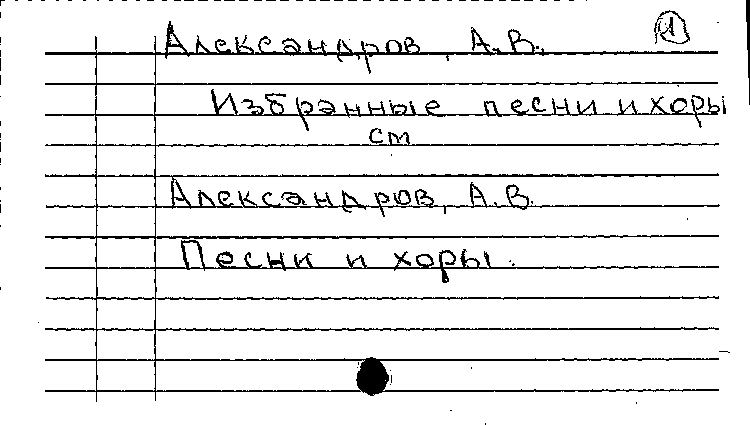 ①
Александров, А.В.
Избранные песни и хоры
см
Александров, А.В.
Песни и хоры.